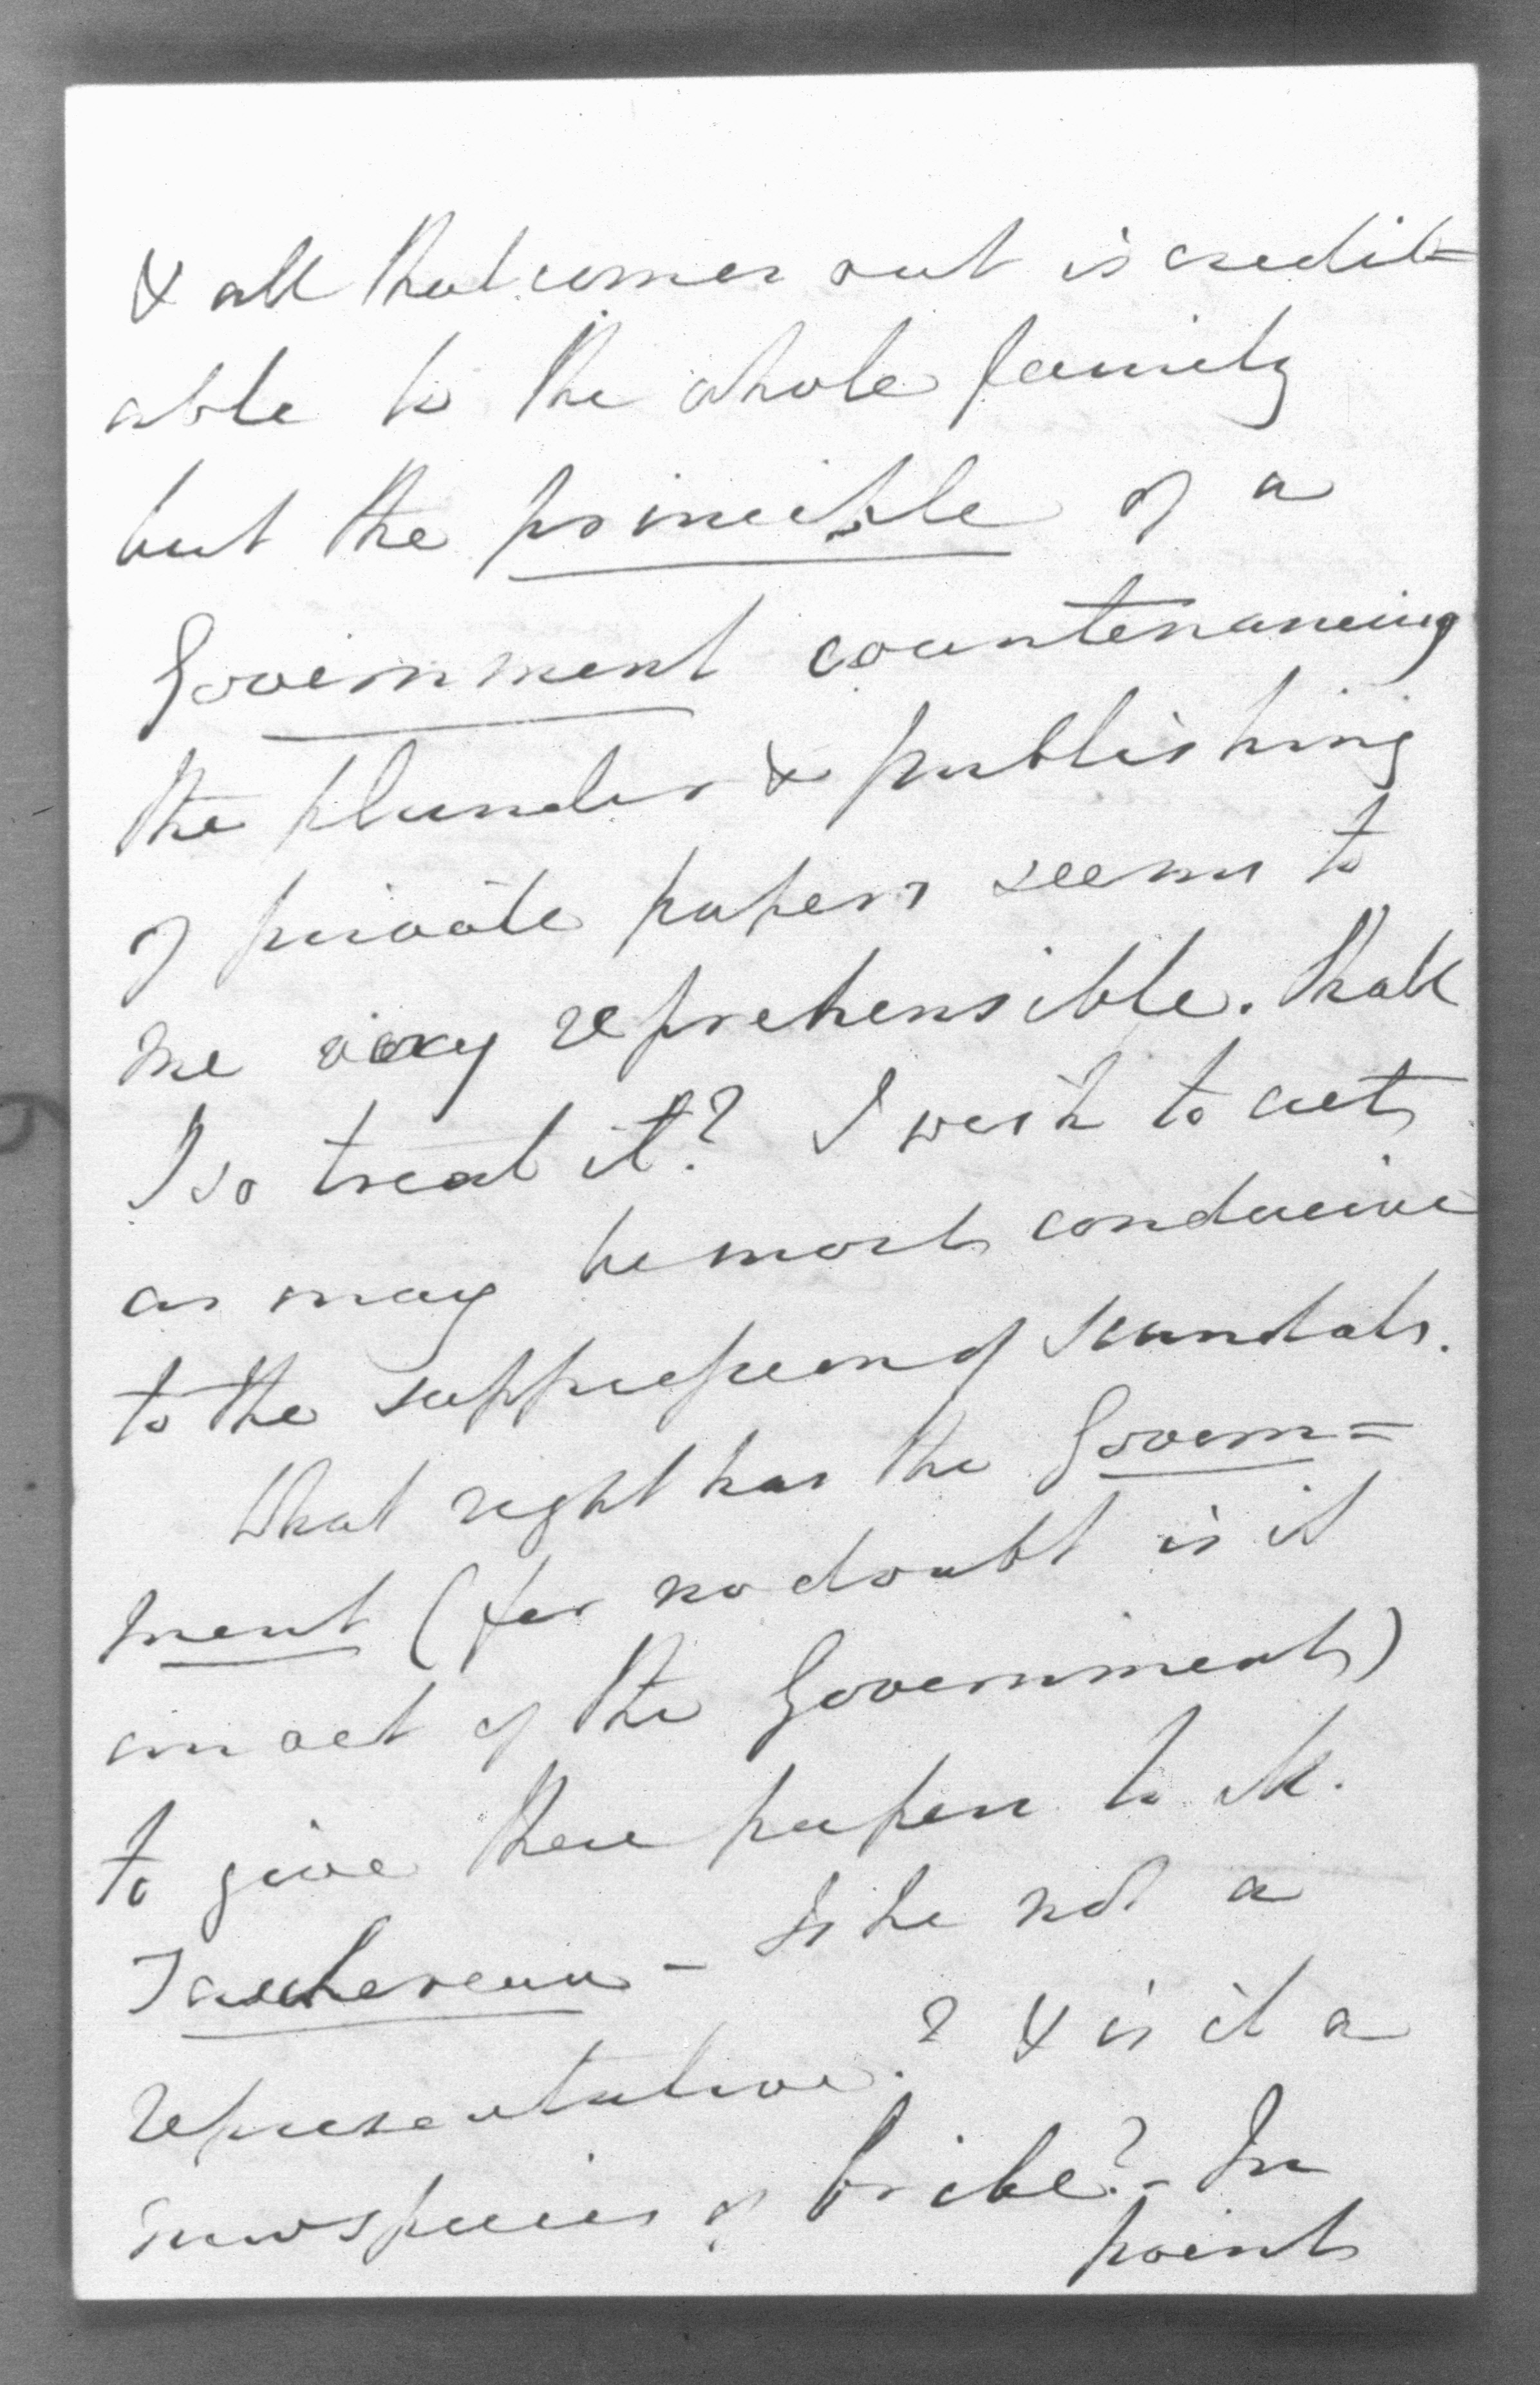 & all that comes out is credit=
able to the whole family
but the principle of a
Government countenancing
the plunder & publishing
of private papers seems to
me very reprehensible. Shall
I so treat it? I wish to act
as may be most conducive
to the suppression of scandals.
What right has the Govern=
ment (for no doubt is it
an act of the Government)
to give these papers to M.
Taschereau - Is he not a
representative? & is it a
new species of bribe? - In
point